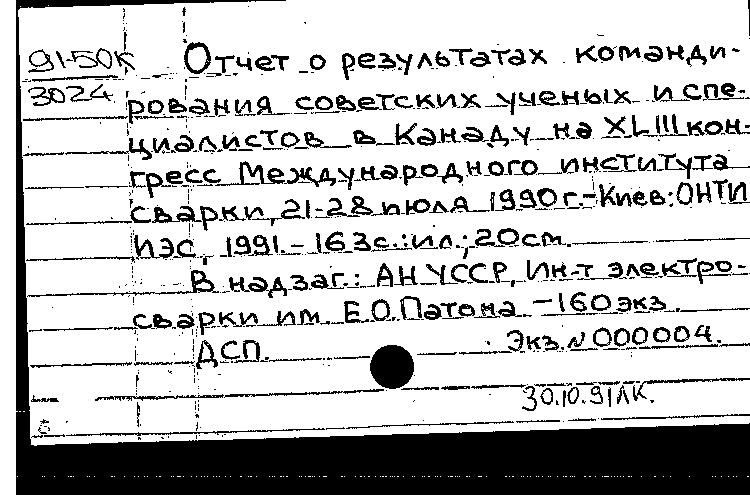 91-50К Отчет о результатах команди-
3024 рования советских ученых и спе-
циалистов в Канаду на XLIII кон-
гресс Международного института
сварки, 21-28 июля 1990 г. - Киев: ОНТИ
ИЭС, 1991. - 163 с.: ил.; 20 см.
В надзаг.: АН УССР, Ин-т электро-
сварки им. Е.О. Патона. - 160 экз.
ДСП. Экз. N 000004.
30.10.91 ЛК.